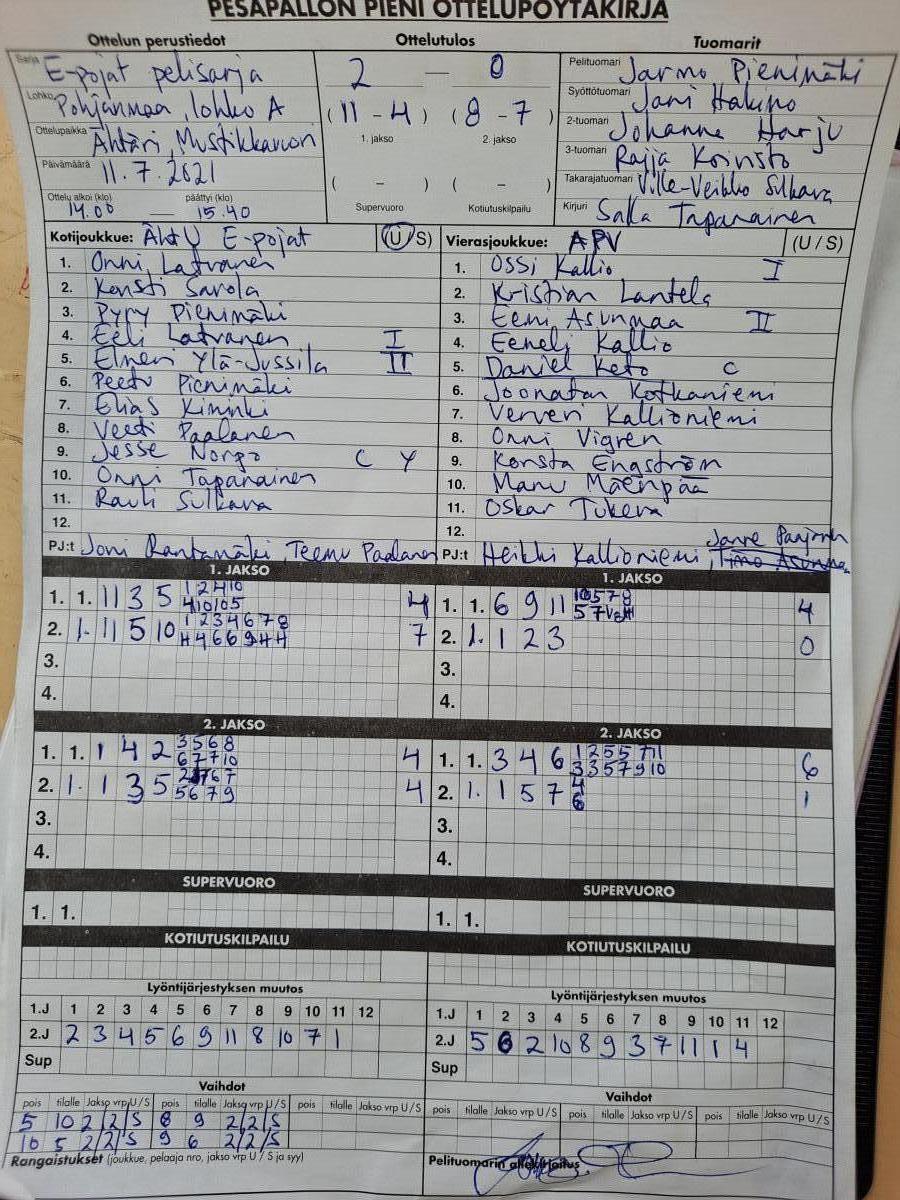 PESÄPALLON PIENI OTTELUPÖYTÄKIRJA
Ottelun perustiedot Ottelutulos Tuomarit
Sarja E-pojat pelisarja
Lohko Pohjanmaa, lohko A
Ottelupaikka Ähtäri, Mustikkavuori
Päivämäärä 11.7.2021
Ottelu alkoi (klo) päättyi (klo)
14.00 — 15.40
2 — 0
(11 - 4) (8 - 7)
1. jakso 2. jakso
( - ) ( - )
Supervuoro Kotiutuskilpailu
Pelituomari Jarmo Pienimäki
Syöttötuomari Jani Hakino
2-tuomari Johanna Harju
3-tuomari Raija Koivisto
Takarajatuomari Ville-Veikko Sulkava
Kirjuri Salla Tapanainen
Kotijoukkue: ÄhtU E-pojat (U/S)
1. Onni Latvanen
2. Konsti Savola
3. Pyry Pienimäki
4. Eeli Latvanen I
5. Elmeri Ylä-Jussila II
6. Peetu Pienimäki
7. Elias Kiminki
8. Veeti Paalanen
9. Jesse Norpo C Y
10. Onni Tapanainen
11. Rauli Sulkava
12.
PJ:t Joni Rantamäki, Teemu Paalanen
Vierasjoukkue: APV (U/S)
1. Ossi Kallio I
2. Kristian Lantela
3. Eemi Asunmaa II
4. Eeneli Kallio
5. Daniel Keto C
6. Joonatan Kotkaniemi
7. Verneri Kallioniemi
8. Onni Vigren
9. Konsta Engström
10. Manu Mäenpää
11. Oskar Tukeva
12.
PJ:t Heikki Kallioniemi, Timo Asunmaa
1. JAKSO
1. 1. 11 3 5 1 2 4 10 4
4 10 10 5
2. 1. 11 5 10 1 2 3 4 6 7 8 7
H 4 6 6 9 H H
3.
4.
1. JAKSO
1. 1. 6 9 11 10 5 7 8 4
5 7
2. 1. 1 2 3 0
3.
4.
2. JAKSO
1. 1. 1 4 2 3 5 6 8 4
6 7 7 10
2. 1. 1 3 5 6 7 4
5 6 7 9
3.
4.
2. JAKSO
1. 1. 3 4 6 1 2 5 5 7 11 6
3 3 5 7 9 10
2. 1. 1 5 7 4 1
6
3.
4.
SUPERVUORO
1. 1.
SUPERVUORO
1. 1.
KOTIUTUSKILPAILU
KOTIUTUSKILPAILU
Lyöntijärjestyksen muutos
1.J 1 2 3 4 5 6 7 8 9 10 11 12
2.J 2 3 4 5 6 9 11 8 10 7 1
Sup
Lyöntijärjestyksen muutos
1.J 1 2 3 4 5 6 7 8 9 10 11 12
2.J 5 6 2 10 8 9 3 7 11 1 4
Sup
Vaihdot
pois tilalle Jakso vrp U/S pois tilalle Jakso vrp U/S pois tilalle Jakso vrp U/S
5 10 2/2/S 8 9 2/2/S
10 5 2/2/S 9 6 2/2/S
Vaihdot
pois tilalle Jakso vrp U/S pois tilalle Jakso vrp U/S pois tilalle Jakso vrp U/S
Rangaistukset (joukkue, pelaaja nro, jakso vrp U / S ja syy)
Pelituomarin allekirjoitus